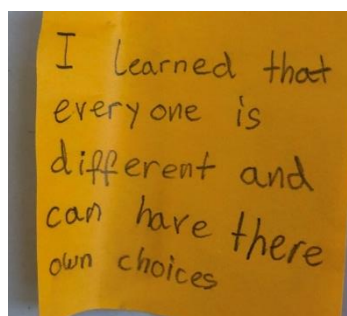 I learned that
everyone is
different and
can have there
own choices